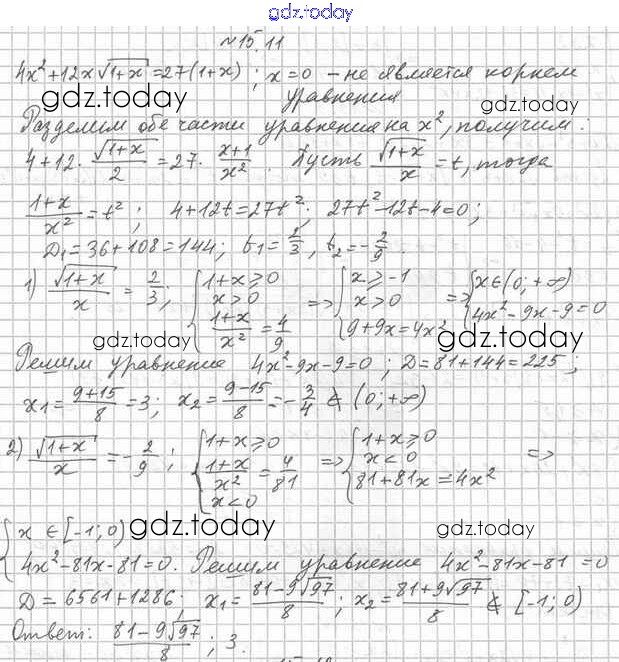 gdz.today
№15.11
4x²+12x√(1+x)=27(1+x); x=0 – не является корнем
уравнения
gdz.today gdz.today
Разделим обе части уравнения на x², получим:
4+12·√(1+x)/2=27·(x+1)/x². Пусть √(1+x)/x=t, тогда
(1+x)/x²=t²; 4+12t=27t²; 27t²-12t-4=0;
D₁=36+108=144; t₁=2/3, t₂=-2/9.
1) √(1+x)/x=2/3; {1+x⩾0 x>0 (1+x)/x²=4/9 => {x⩾-1 x>0 9+9x=4x² => {x∈(0;+∞) 4x²-9x-9=0
gdz.today gdz.today
Решим уравнение 4x²-9x-9=0; D=81+144=225;
x₁=(9+15)/8=3; x₂=(9-15)/8=-3/4 ∉ (0;+∞)
2) √(1+x)/x=-2/9; {1+x⩾0 (1+x)/x²=4/81 x<0 => {1+x⩾0 x<0 81+81x=4x² =>
gdz.today gdz.today
{x∈[-1;0)
4x²-81x-81=0. Решим уравнение 4x²-81x-81=0
D=6561+1286; x₁=(81-9√97)/8; x₂=(81+9√97)/8 ∉ [-1;0)
Ответ: (81-9√97)/8; 3.